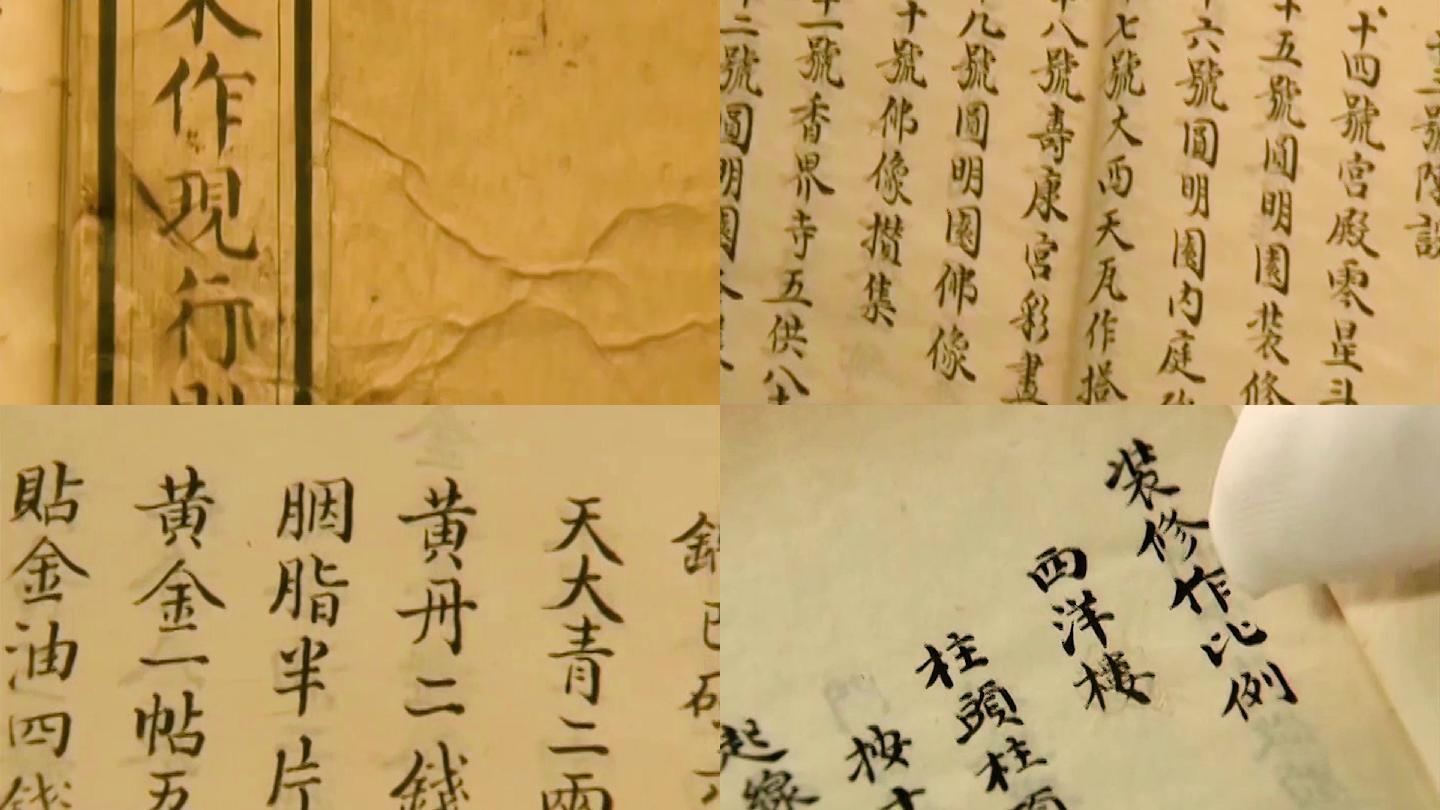 木作現行則
十三號陳設
十四號宮殿零星斗
十五號圓明園裝修
十六號圓明園內庭
十七號大西天瓦作搭
十八號壽康宮彩畫
十九號圓明園佛像
十號佛像攢集
十一號香界寺五供八
十二號圓明園
天大青二兩
黃丹二錢
胭脂半片
黃金一帖五
貼金油四錢
裝修作比例
西洋樓
柱頭柱頂
按
起線